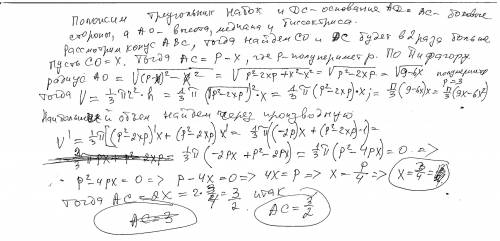 Положим треугольник набок и DC- основание AD = AC- боковые
стороны, а AO- высота, медиана и биссектриса.
Рассмотрим конус ABC, тогда найдем CO и DC будет в 2 раза больше
Пусть CO=X. Тогда AC=P-X, где P-полупериметр. По Пифагору
радиус AO = √(P-X)²-X² = √P²-2XP+X²-X² = √P²-2XP = √9-6X полупериметр P=3
Тогда V = 1/3 π r²·h = 1/3 π (√P²-2XP)²·X = π/3 (P²-2XP)·X; = π/3 (9-6X)X = π/3 (9X-6X²)
Наибольший объем найдем через производную
V' = 1/3 π [(P²-2XP)'X + (P²-2XP)X'] = 1/3 π ((-2P)X + (P²-2XP)·1) =
= 1/3 π (-2PX + P²-2PX) = 1/3 π (P²-4PX) = 0 =>
P²-4PX=0 => P-4X=0 => 4X=P => X = P/4 => X = 3/4
Тогда AC = 2X = 2·3/4 = 3/2 итак
AC = 3/2